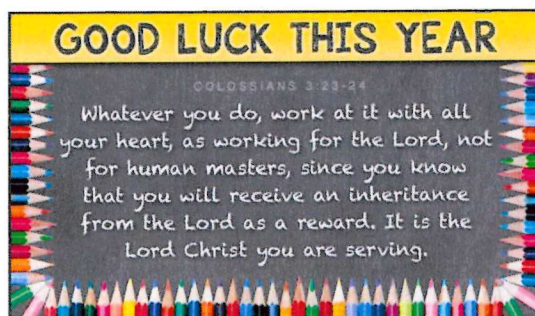 GOOD LUCK THIS YEAR
COLOSSIANS 3:23-24
Whatever you do, work at it with all
your heart, as working for the Lord, not
for human masters, since you know
that you will receive an inheritance
from the Lord as a reward. It is the
Lord Christ you are serving.